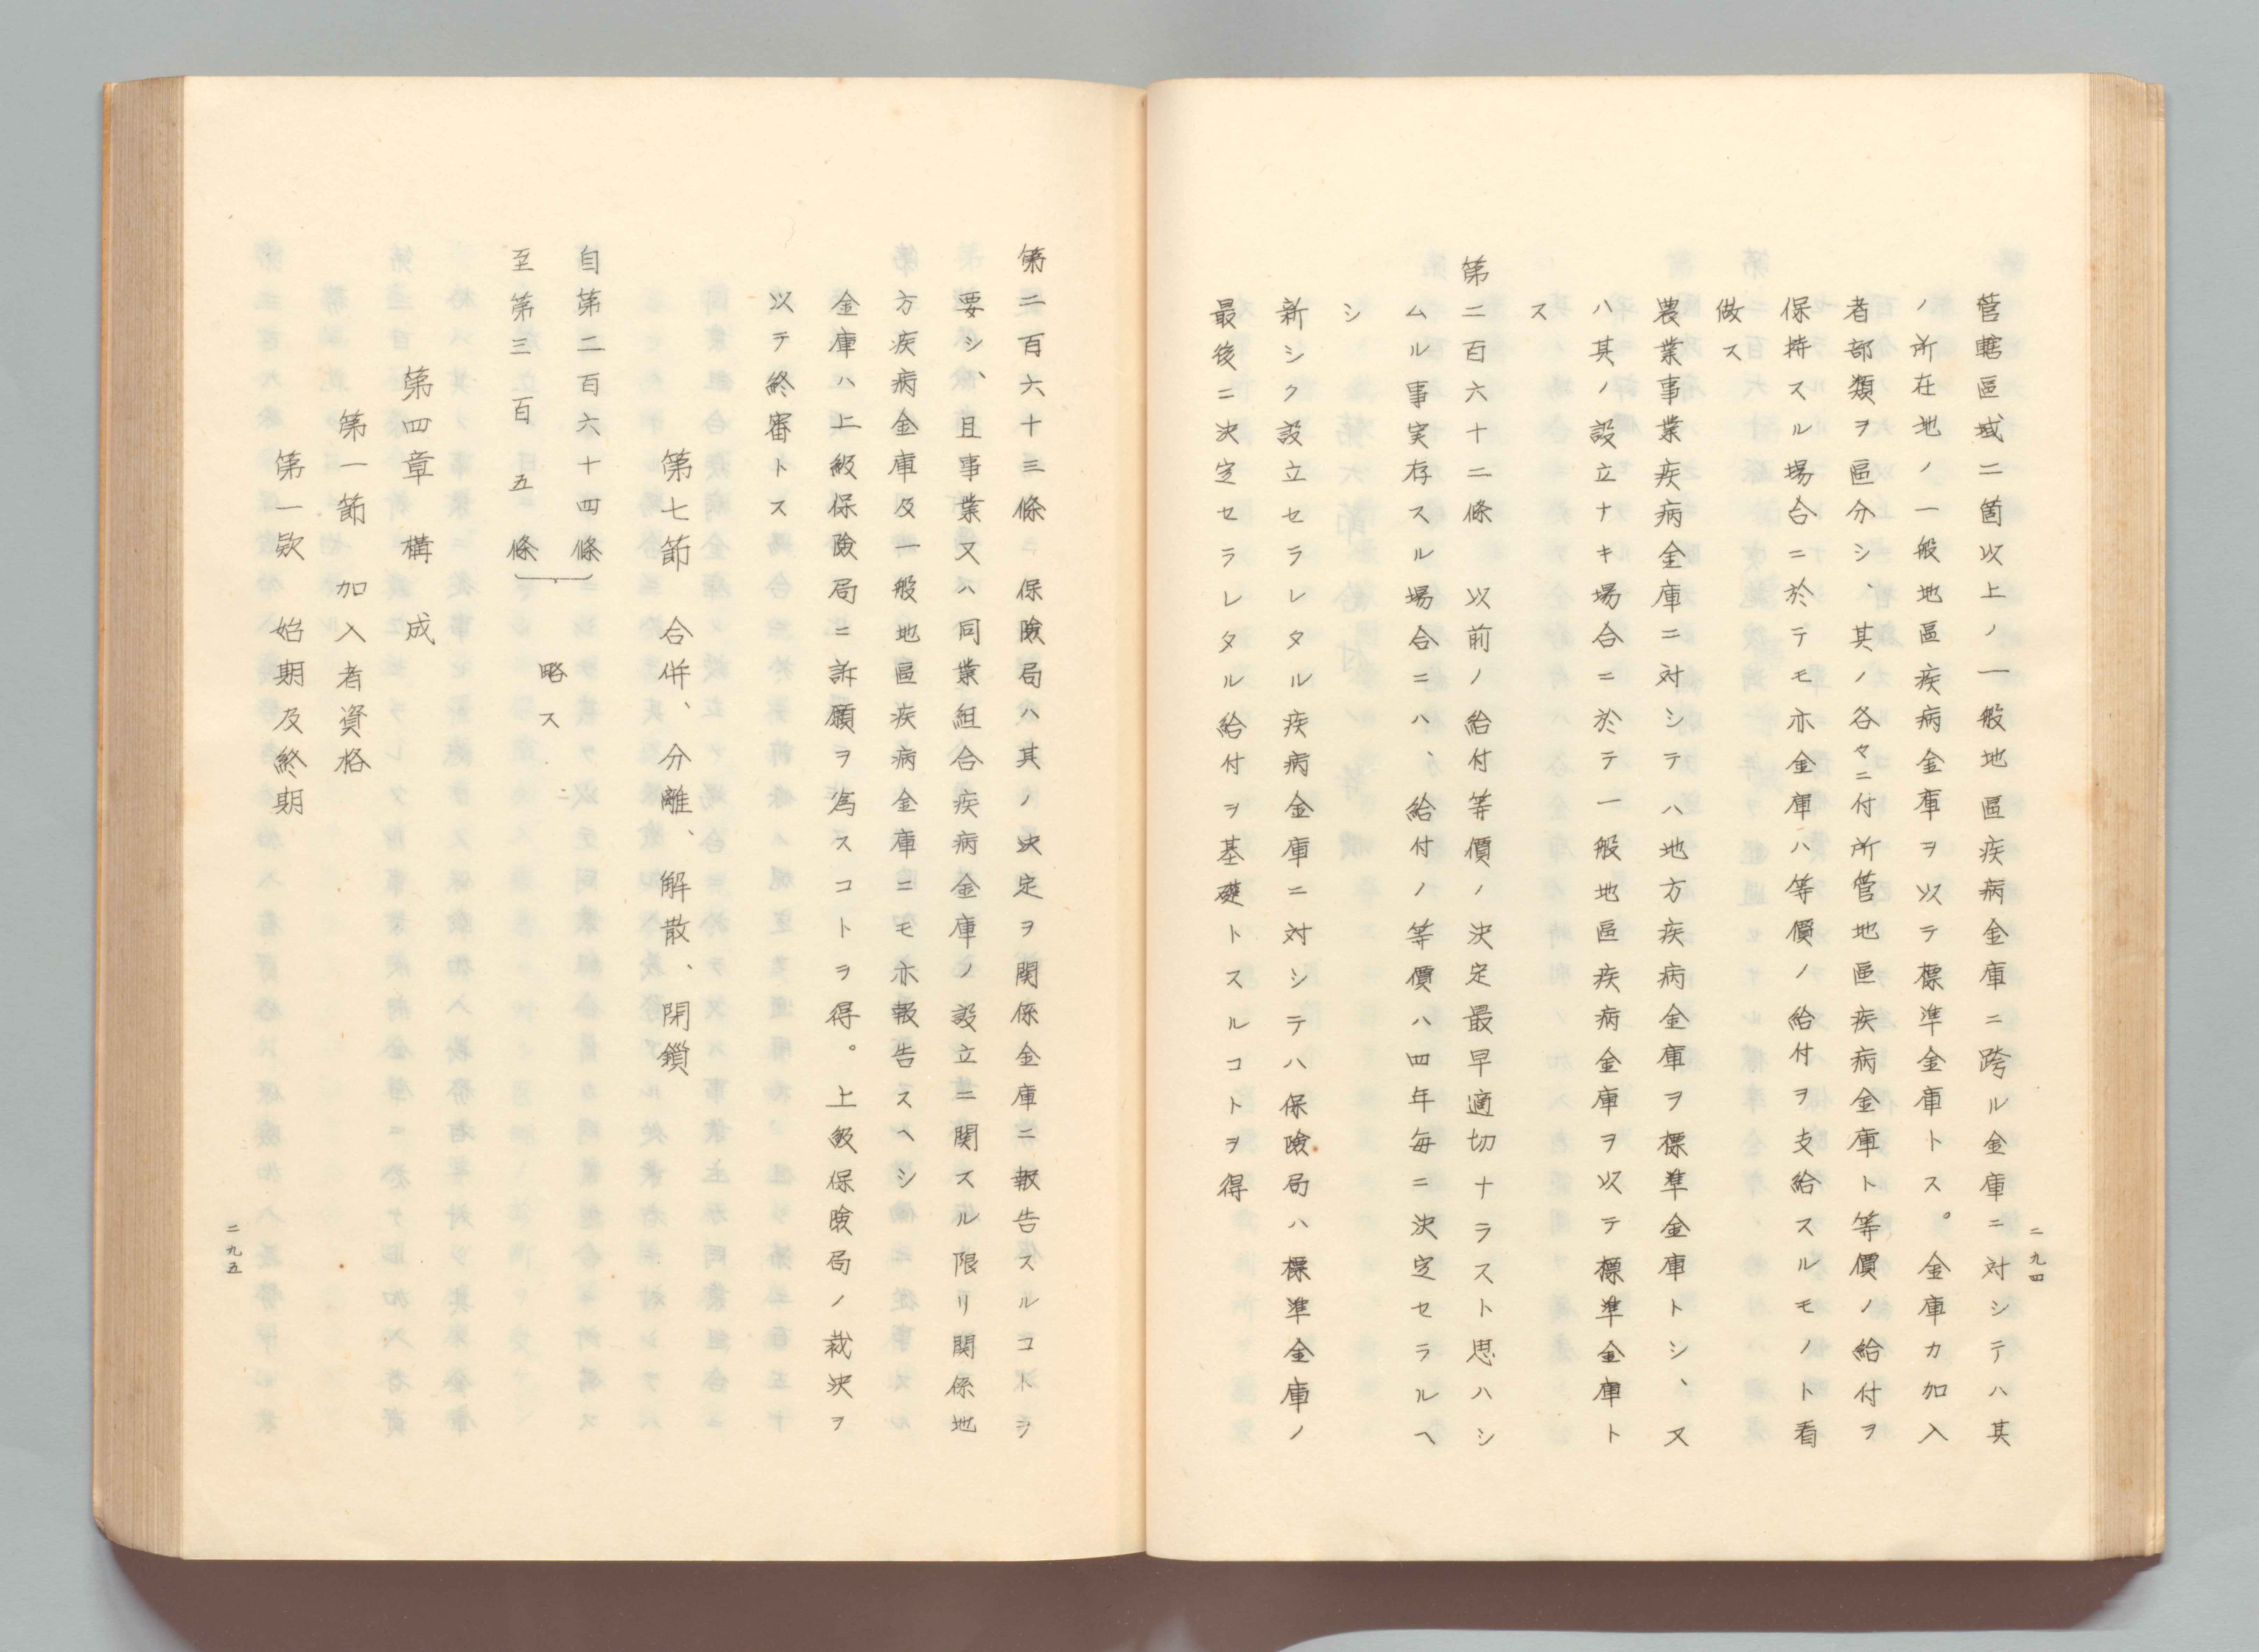 管轄區域二箇以上ノ一般地區疾病金庫ニ跨ル金庫ニ対シテハ其
ノ所在地ノ一般地區疾病金庫ヲ以テ標準金庫トス。金庫カ加入
者部類ヲ區分シ、其ノ各々ニ付所管地區疾病金庫ト等價ノ給付ヲ
保持スル場合ニ於テモ亦金庫ハ等價ノ給付ヲ支給スルモノト看
做ス
農業事業疾病金庫ニ対シテハ地方疾病金庫ヲ標準金庫トシ、又
ハ其ノ設立ナキ場合ニ於テ一般地區疾病金庫ヲ以テ標準金庫ト
ス
第二百六十二條 以前ノ給付等價ノ決定最早適切ナラスト思ハシ
ムル事実存スル場合ニハ、給付ノ等價ハ四年毎ニ決定セラルヘ
シ
新シク設立セラレタル疾病金庫ニ対シテハ保險局ハ標準金庫ノ
最後ニ決定セラレタル給付ヲ基礎トスルコトヲ得
二九四
第二百六十三條 保險局ハ其ノ決定ヲ関係金庫ニ報告スルコトヲ
要シ、且事業又ハ同業組合疾病金庫ノ設立ニ関スル限リ関係地
方疾病金庫及一般地區疾病金庫ニモ亦報告スヘシ
金庫ハ上級保險局ニ訴願ヲ為スコトヲ得。上級保險局ノ裁決ヲ
以テ終審トス
第七節 合併、分離、解散、閉鎖
自第二百六十四條
至第三百五條
略ス
第四章 構成
第一節 加入者資格
第一欵 始期及終期
二九五